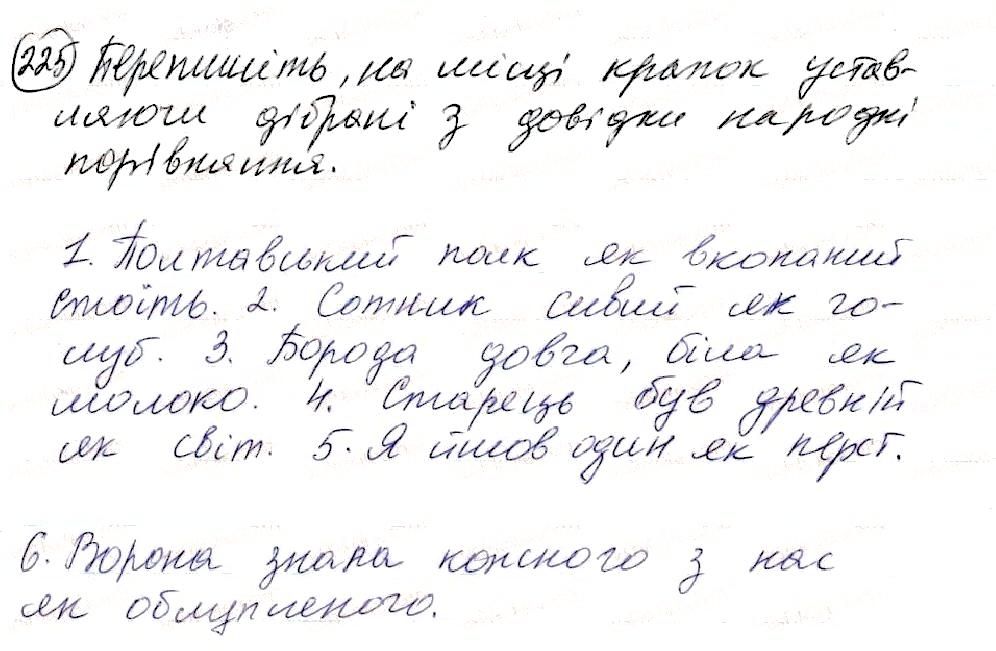 225 Перепишіть, на місці крапок устав-
ляючи дібрані з довідки народні
порівняння.
1. Полтавський полк як вкопаний
стоїть. 2. Сотник сивий як го-
луб. 3. Борода довга, біла як
молоко. 4. Старець був древній
як світ. 5. Я йшов один як перст.
6. Ворона знала кожного з нас
як облупленого.